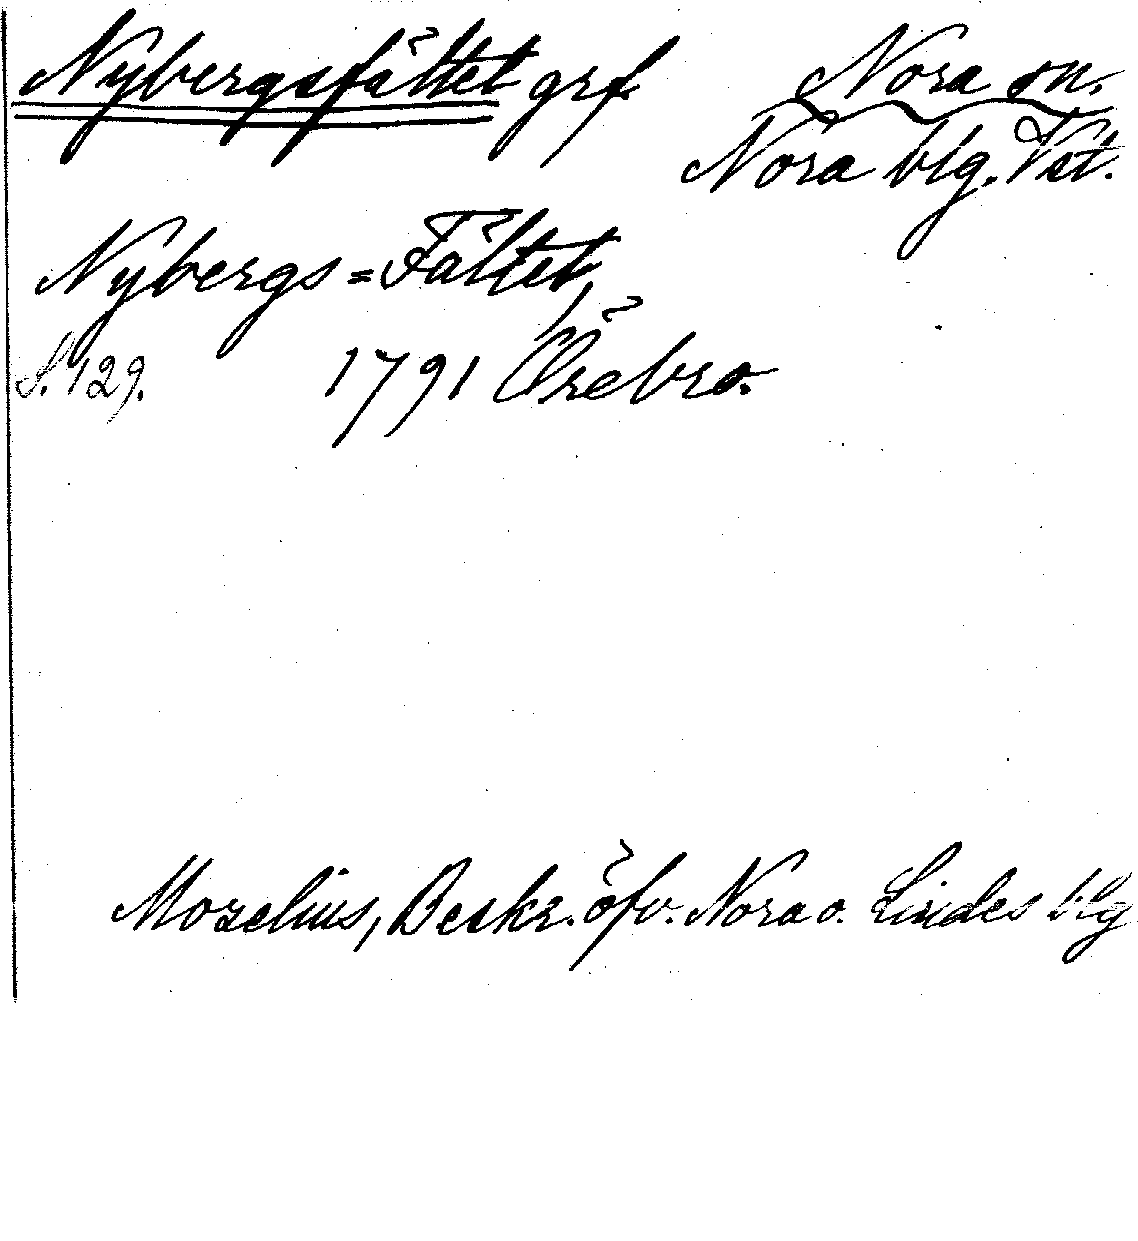 Nybergsfältet grf. Nora sn.
Nora blg. Vst.
Nybergs=Fältet,
S. 129. 1791 Örebro.
Mozelius, Beskr. öfv. Nora o. Lindes blg